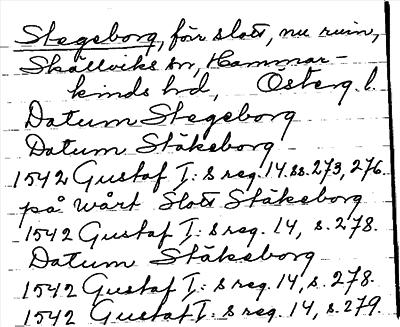 Stegeborg, förr slott, nu ruin,
Skällviks sn, Hammar-
kinds hd, Österg. l.
Datum Stegeborg
Datum Stäkeborg
1542 Gustaf I:s reg. 14. ss. 273, 276.
på wårt Slott Stäkeborg
1542 Gustaf I:s reg. 14, s. 278.
Datum Stäkeborg
1542 Gustaf I:s reg. 14, s. 278.
1542 Gustaf I:s reg. 14, s. 279.